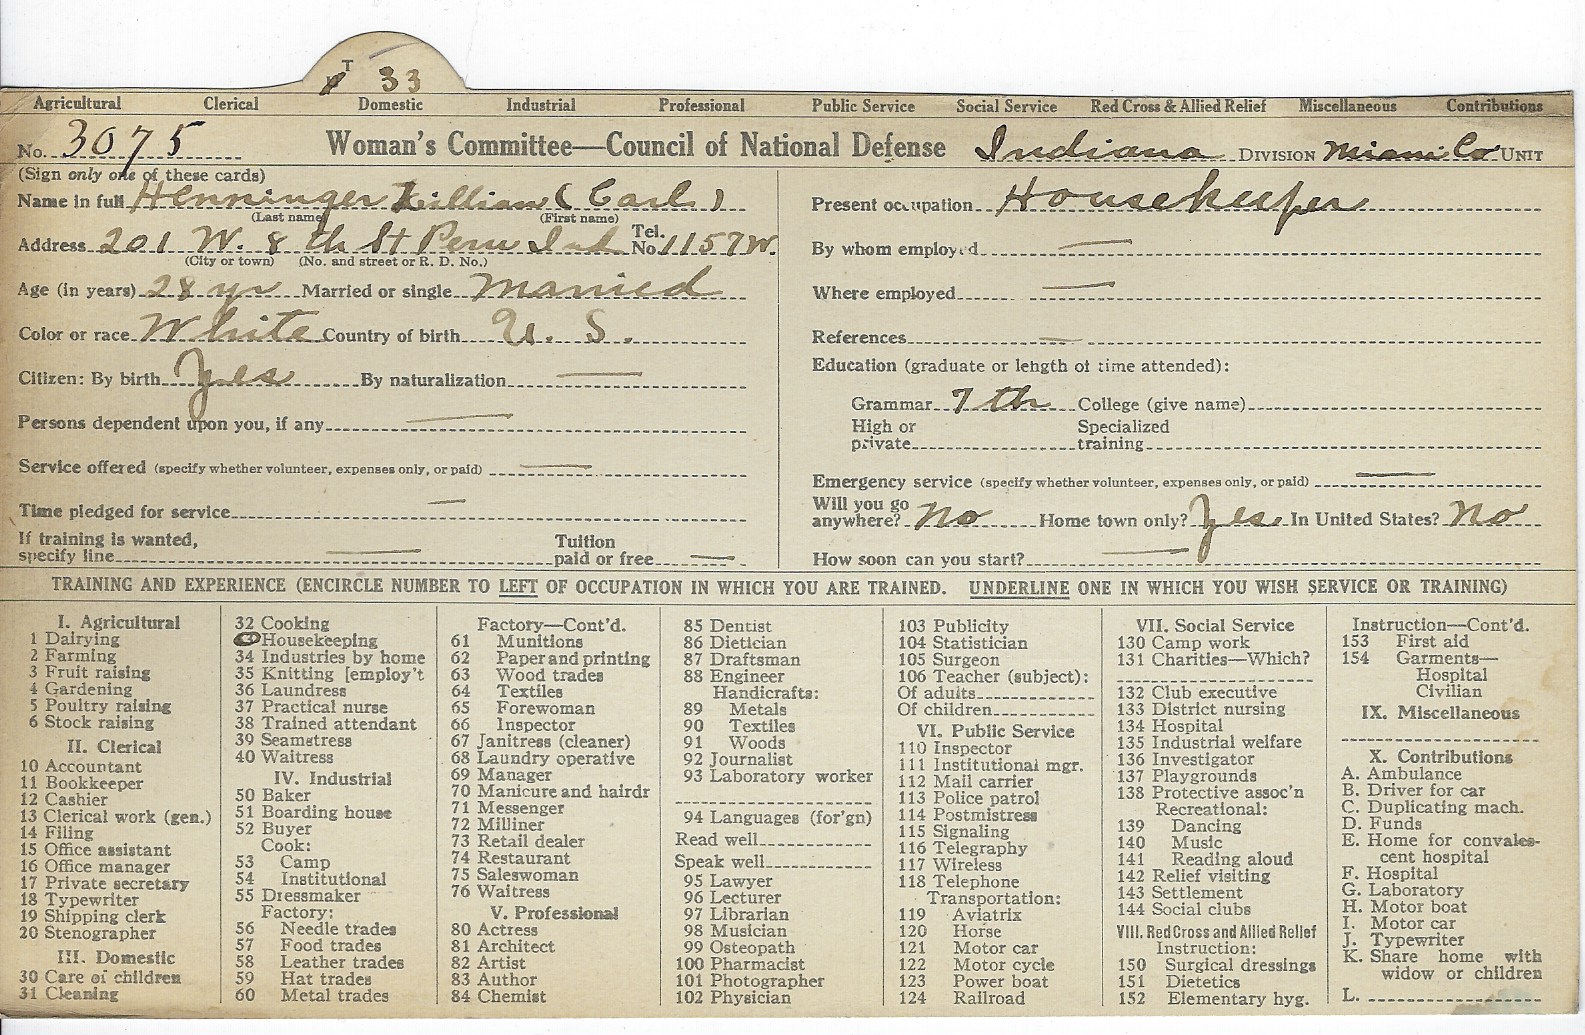 T 33
Agricultural Clerical Domestic Industrial Professional Public Service Social Service Red Cross & Allied Relief Miscellaneous Contributions
No. 3075 Woman's Committee—Council of National Defense Indiana DIVISION Miami Co UNIT
(Sign only one of these cards)
Name in full Henninger Lillian (Carl)
(Last name) (First name)
Address 201 W. 8th St Peru Ind Tel. No. 1157W.
(City or town) (No. and street or R. D. No.)
Age (in years) 28 yr Married or single Married
Color or race White Country of birth U. S.
Citizen: By birth Yes By naturalization —
Persons dependent upon you, if any —
Service offered (specify whether volunteer, expenses only, or paid) —
Time pledged for service —
If training is wanted, specify line — Tuition paid or free —
Present occupation Housekeeper
By whom employed —
Where employed —
References —
Education (graduate or length of time attended):
Grammar 7th College (give name)
High or private Specialized training
Emergency service (specify whether volunteer, expenses only, or paid) —
Will you go anywhere? No Home town only? Yes. In United States? No
How soon can you start? —
TRAINING AND EXPERIENCE (ENCIRCLE NUMBER TO LEFT OF OCCUPATION IN WHICH YOU ARE TRAINED. UNDERLINE ONE IN WHICH YOU WISH SERVICE OR TRAINING)
I. Agricultural
1 Dairying
2 Farming
3 Fruit raising
4 Gardening
5 Poultry raising
6 Stock raising
II. Clerical
10 Accountant
11 Bookkeeper
12 Cashier
13 Clerical work (gen.)
14 Filing
15 Office assistant
16 Office manager
17 Private secretary
18 Typewriter
19 Shipping clerk
20 Stenographer
III. Domestic
30 Care of children
31 Cleaning
32 Cooking
Housekeeping
34 Industries by home
35 Knitting [employ't
36 Laundress
37 Practical nurse
38 Trained attendant
39 Seamstress
40 Waitress
IV. Industrial
50 Baker
51 Boarding house
52 Buyer
Cook:
53 Camp
54 Institutional
55 Dressmaker
Factory:
56 Needle trades
57 Food trades
58 Leather trades
59 Hat trades
60 Metal trades
Factory—Cont'd.
61 Munitions
62 Paper and printing
63 Wood trades
64 Textiles
65 Forewoman
66 Inspector
67 Janitress (cleaner)
68 Laundry operative
69 Manager
70 Manicure and hairdr
71 Messenger
72 Milliner
73 Retail dealer
74 Restaurant
75 Saleswoman
76 Waitress
V. Professional
80 Actress
81 Architect
82 Artist
83 Author
84 Chemist
85 Dentist
86 Dietician
87 Draftsman
88 Engineer
Handicrafts:
89 Metals
90 Textiles
91 Woods
92 Journalist
93 Laboratory worker
94 Languages (for'gn)
Read well
Speak well
95 Lawyer
96 Lecturer
97 Librarian
98 Musician
99 Osteopath
100 Pharmacist
101 Photographer
102 Physician
103 Publicity
104 Statistician
105 Surgeon
106 Teacher (subject):
Of adults
Of children
VI. Public Service
110 Inspector
111 Institutional mgr.
112 Mail carrier
113 Police patrol
114 Postmistress
115 Signaling
116 Telegraphy
117 Wireless
118 Telephone
Transportation:
119 Aviatrix
120 Horse
121 Motor car
122 Motor cycle
123 Power boat
124 Railroad
VII. Social Service
130 Camp work
131 Charities—Which?
132 Club executive
133 District nursing
134 Hospital
135 Industrial welfare
136 Investigator
137 Playgrounds
138 Protective assoc'n
Recreational:
139 Dancing
140 Music
141 Reading aloud
142 Relief visiting
143 Settlement
144 Social clubs
VIII. Red Cross and Allied Relief
Instruction:
150 Surgical dressings
151 Dietetics
152 Elementary hyg.
Instruction—Cont'd.
153 First aid
154 Garments—
Hospital
Civilian
IX. Miscellaneous
X. Contributions
A. Ambulance
B. Driver for car
C. Duplicating mach.
D. Funds
E. Home for convales-
cent hospital
F. Hospital
G. Laboratory
H. Motor boat
I. Motor car
J. Typewriter
K. Share home with
widow or children
L.